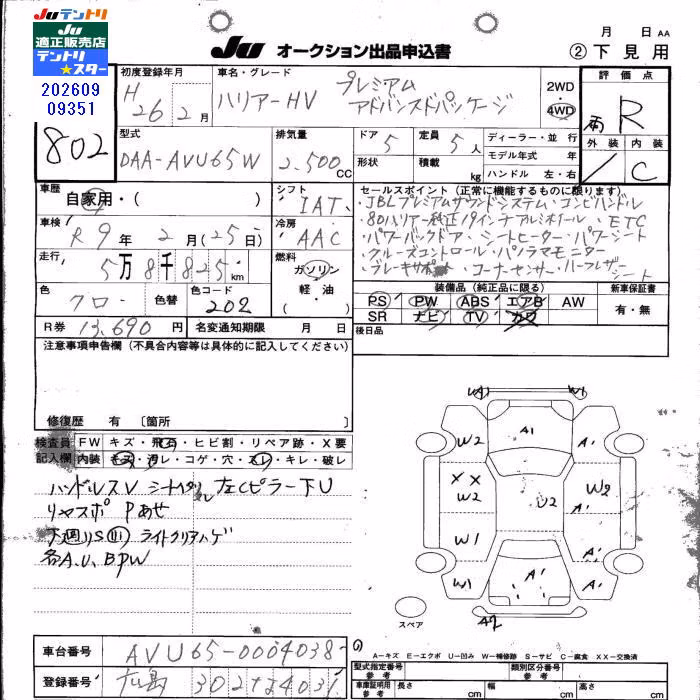 Juテントリ
Ju
適正販売店
テントリ
★スター
202609
09351
Ju オークション出品申込書
月 日 AA
② 下見用
802
初度登録年月
H 26年 2月
車名・グレード
ハリアーHV
プレミアム
アドバンスドパッケージ
2WD
4WD
評価点
R
外装 内装
C
型式
DAA-AVU65W
排気量
2.500 CC
ドア 5
定員 5人
形状
積載 kg
ディーラー・並行
モデル年式 年
ハンドル 左・右
車歴
自家用・( )
シフト
IAT
車検
R 9年 2月 (25日)
冷房
AAC
走行
5万8千825km
燃料
ガソリン
軽・油
( )
色
クロー
色替
色コード
202
R券 13,690円
名変通知期限 月 日
セールスポイント (正常に機能するものに限ります)
・JBLプレミアムサウンドシステム・コンビハンドル
・80ハリアー純正19インチアルミホイール・ETC
・パワーバックドア・シートヒーター・パワーシート
・クルーズコントロール・パノラマモニター
・ブレーキサポート・コーナーセンサー・ハーフレザーシート
装備品 (純正品に限る)
新車保証書
PS PW ABS エアB AW
SR ナビ TV カワ
有・無
後日品
注意事項申告欄 (不具合内容等は具体的に記入してください)
修復歴 有 〔箇所 〕
検査員 FW キズ・飛石・ヒビ割・リペア跡・X要
記入欄 内装 キズ・汚レ・コゲ・穴・スレ・キレ・破レ
ハンドルスレ シートヘタリ 左Cピラー下U
リヤスポ Pあせ
下廻りS ライトクリアハゲ
各A.U.BPW
W1 W1
W2 A1 A'
XX
W2 U2 W2
W1 A'
W1 A' A'
A2
スペア
A=キズ E=エクボ U=凹み W=補修跡 S=サビ C=腐食 XX=交換済
車台番号 AVU65-0004038
登録番号 広島 302
型式指定番号
類別区分番号
車庫証明用
参考
長さ cm
幅 cm
高さ cm